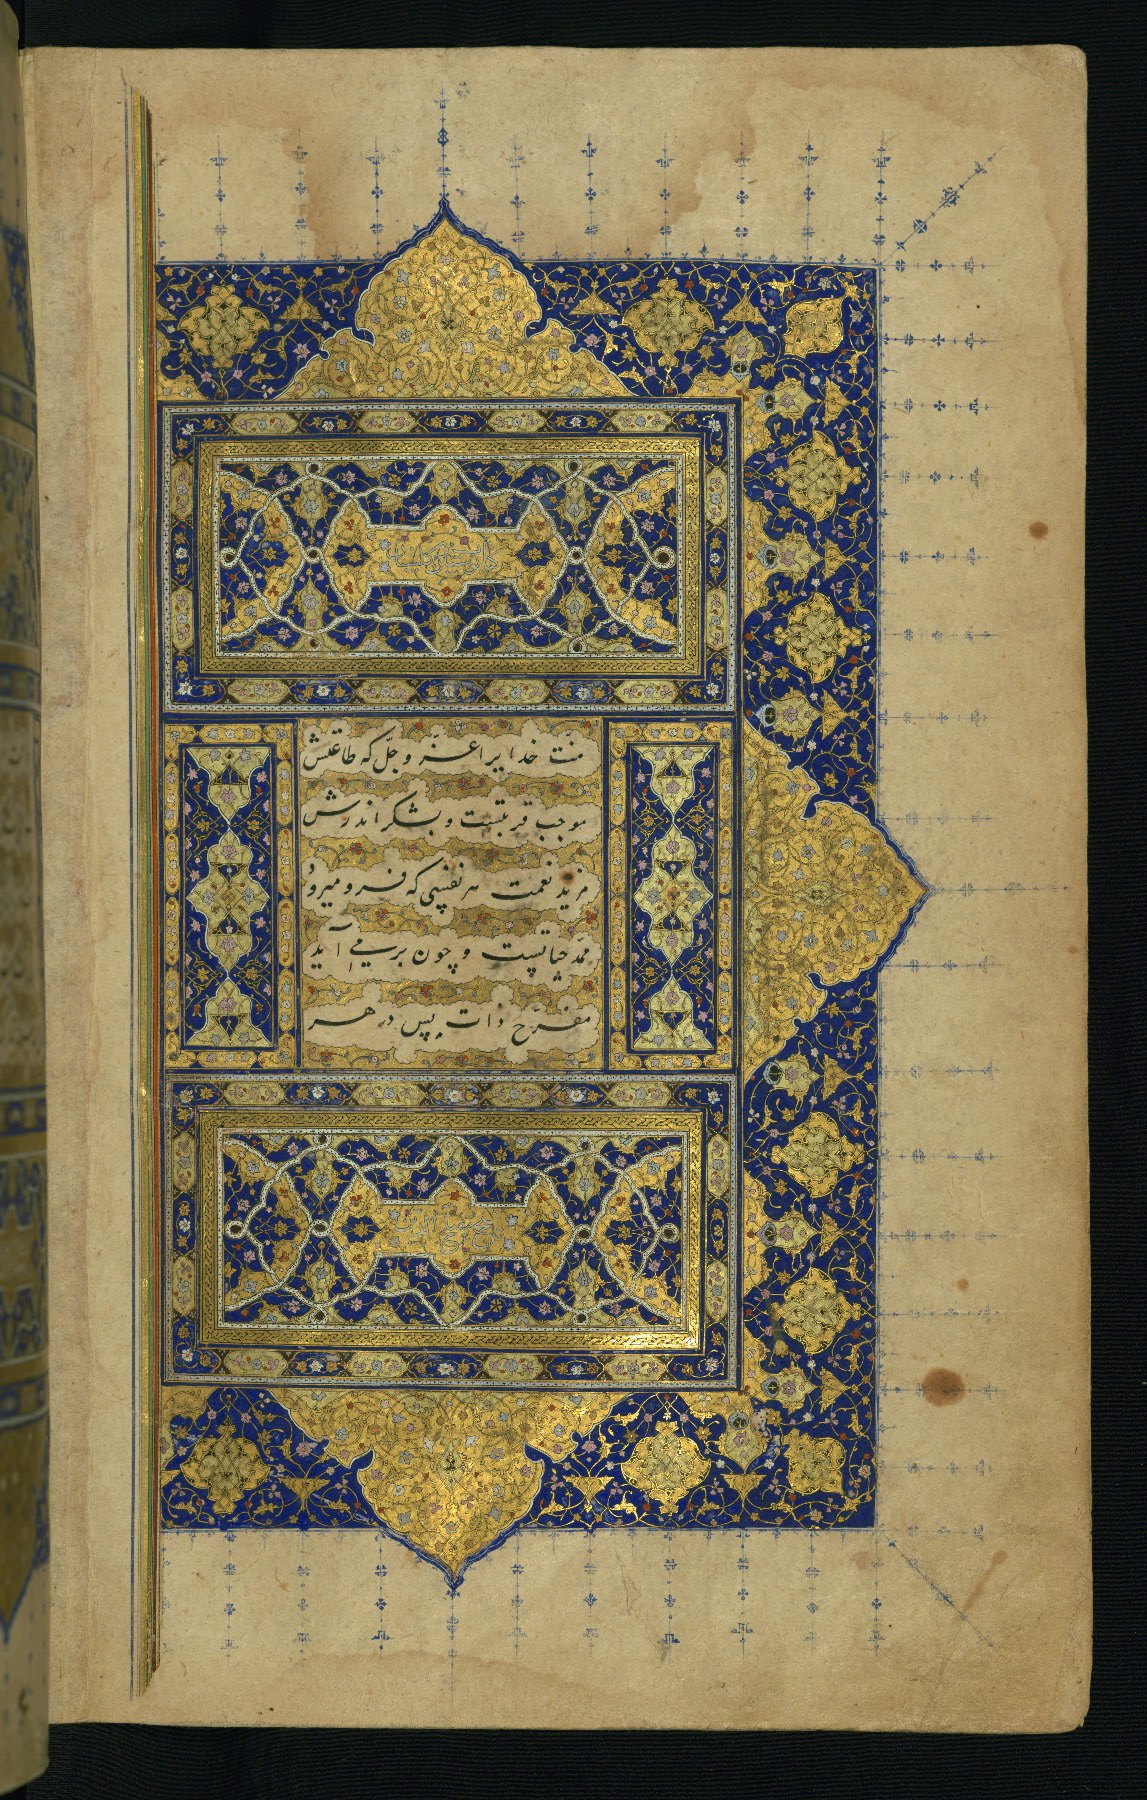 منت خدایرا عز و جل که طاعتش
موجب قربتست و بشکر اندرش
مزید نعمت هر نفسی که فرو میرود
ممد حیاتست و چون برمی آید
مفرح ذات پس در هر